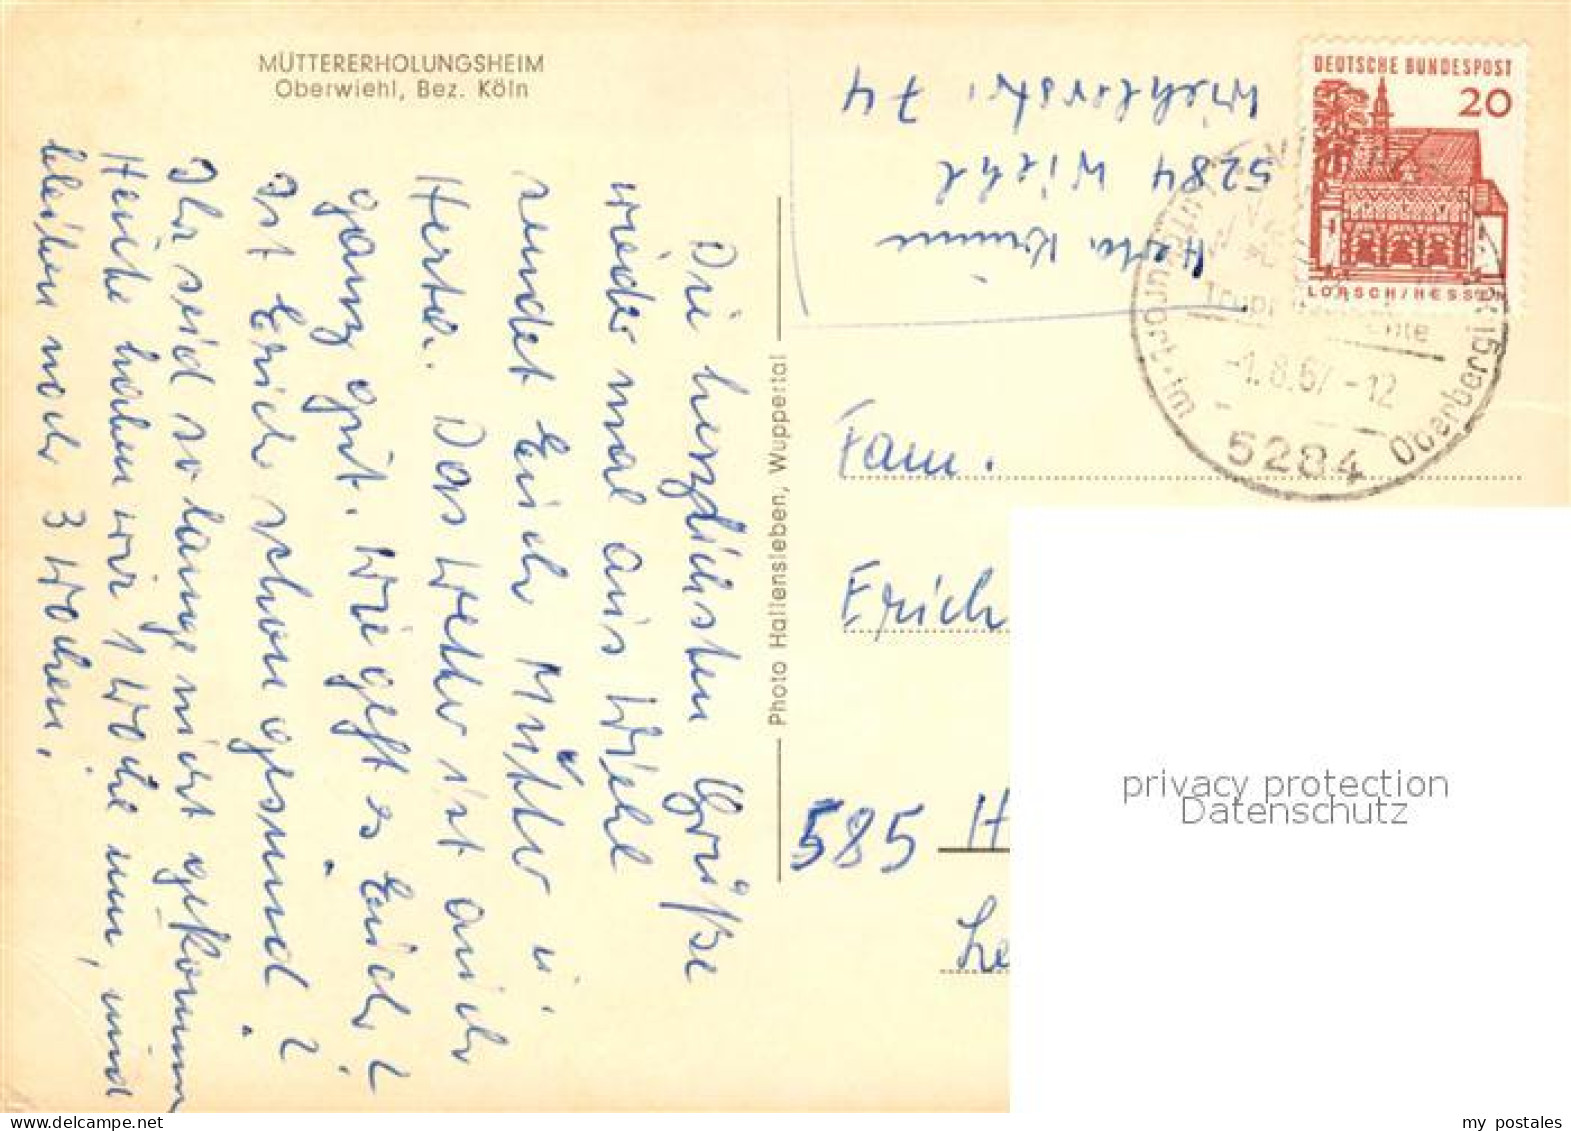 MÜTTERERHOLUNGSHEIM
Oberwiehl, Bez. Köln
Die herzlichsten Grüße
wieder mal aus Wiehl
sendet Euch Mutter u.
Herta. Das Wetter ist auch
ganz gut. Wie geht es Euch?
Ist Erich schon gesund?
Ihr seid so lange nicht gekommen
Heute haben wir 1 Woche um, und
bleiben noch 3 Wochen.
Photo Hallensleben, Wuppertal
5284 Wiehl
74
DEUTSCHE BUNDESPOST
20
LORSCH/HESSEN
-1.8.67-12
5284
im
Fam.
Erich
585 H
Le
privacy protection
Datenschutz
my postales